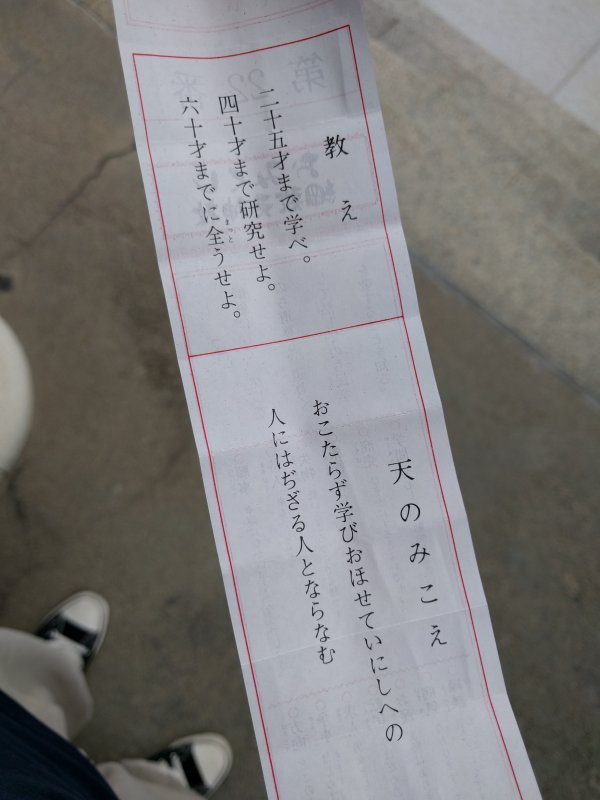 教え
二十五才まで学べ。
四十才まで研究せよ。
六十才までに全うせよ。
まっと
天のみこえ
おこたらず学びおほせていにしへの
人にはぢざる人とならなむ